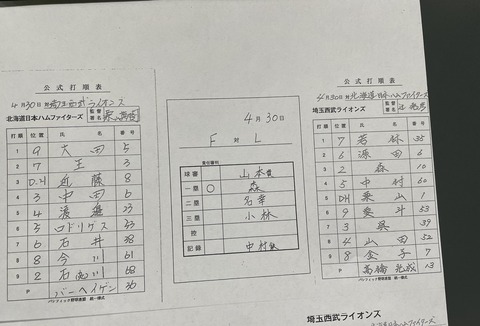 公式打順表
4月30日 対 埼玉西武ライオンズ
北海道日本ハムファイターズ 監督署名
打順 位置 氏名 番号
1 9 大田 5
2 7 王 3
3 D.H 近藤 8
4 3 中田 6
5 4 渡邉 23
6 5 ロドリゲス 53
7 6 石井 38
8 8 今川 61
9 2 石川 68
P バーヘイゲン 36
パシフィック野球連盟 統一様式
4月30日
F 対 L
責任審判
球審 山本貴
一塁 ○ 森
二塁 名幸
三塁 小林
控
記録 中村
公式打順表
4月30日 対 北海道日本ハムファイターズ
埼玉西武ライオンズ 監督署名 辻
打順 位置 氏名 番号
1 7 若林 35
2 6 源田 6
3 2 森 10
4 5 中村 60
5 DH 栗山 1
6 9 愛斗 53
7 3 呉 39
8 4 山田 52
9 8 金子 7
P 高橋光成 13
パシフィック野球連盟 統一様式
埼玉西武ライオンズ